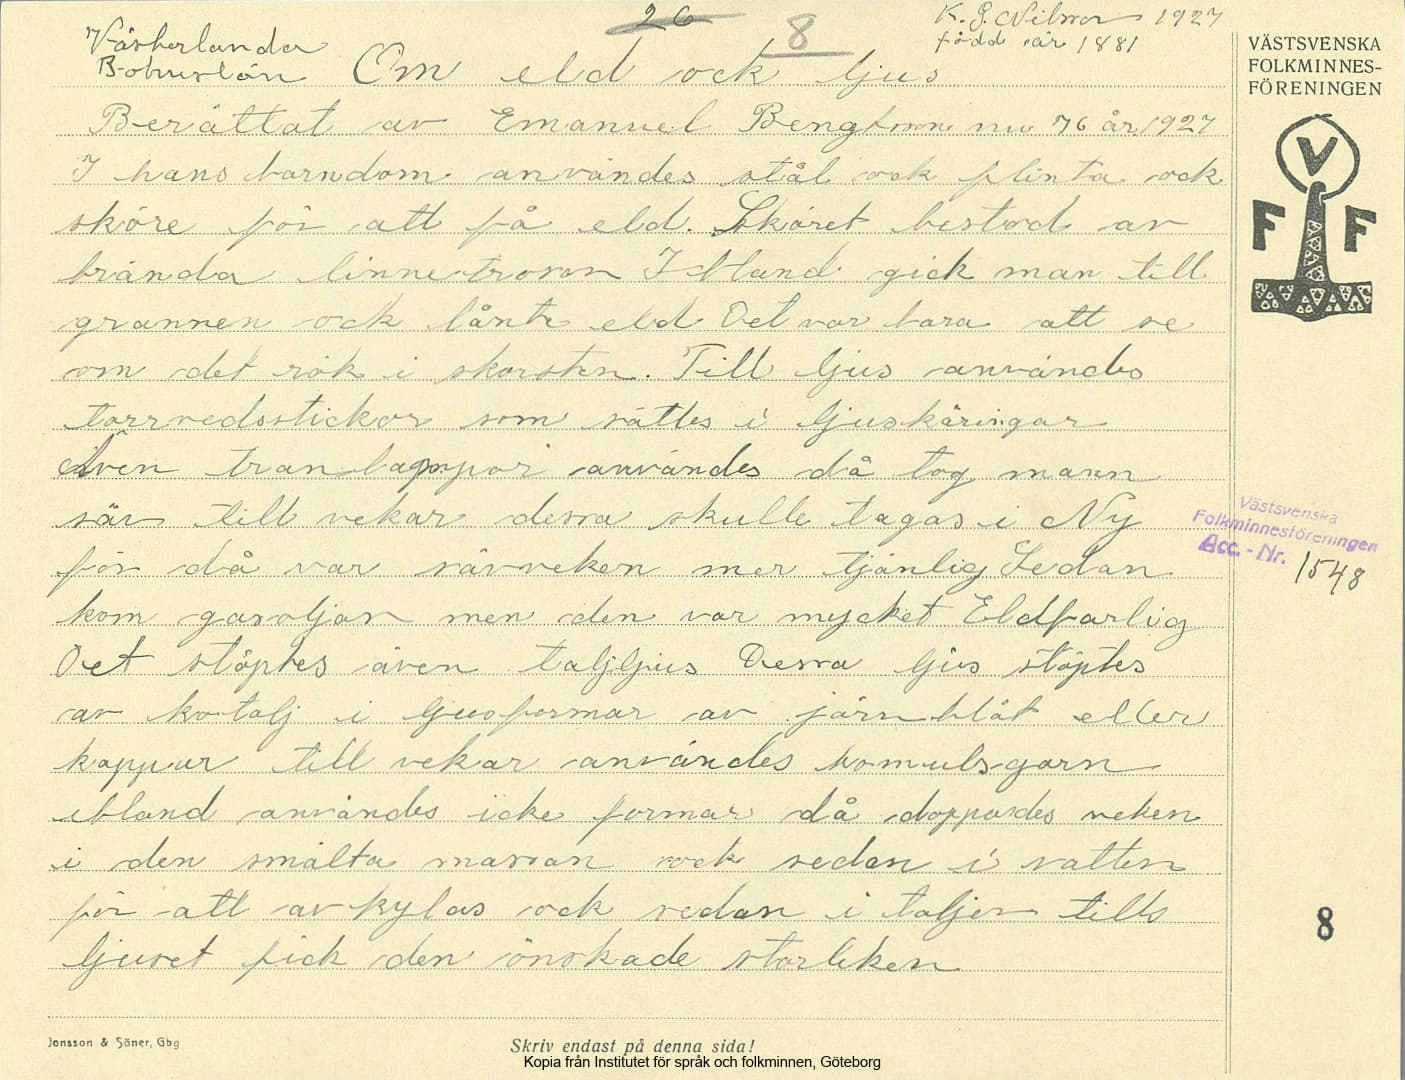 26
8
K. G. Nilsson 1927
född år 1881
Västerlanda
Bohuslän
Om eld ock ljus
Berättat av Emanuel Bengtsson nu 76 år 1927
I hans barndom användes stål ock flinta ock
sköre för att få eld. Sköret bestod av
brända linnetrosor Ibland gick man till
grannen ock lånte eld Det var bara att se
om det rök i skorsten. Till ljus användes
torrvedsstickor som sattes i ljuskäringar
även tranlappor användes då tog mann
säv till vekar dessa skulle tagas i Ny
för då var sävveken mer tjänlig Sedan
kom gasoljan men den var mycket Eldfarlig
Det stöptes även taljljus Dessa ljus stöptes
av kotalj i ljusformar av järnblät eller
koppar till vekar användes bomulsgarn
ibland användes icke formar då doppades veken
i den smälta massan ock sedan i vatten
för att avkylas ock sedan i taljen tills
ljuset fick den önskade storleken
VÄSTSVENSKA
FOLKMINNES-
FÖRENINGEN
V
F F
Västsvenska
Folkminnesföreningen
Acc.-Nr. 1548
8
Jonsson & Söner, Gbg
Skriv endast på denna sida!
Kopia från Institutet för språk och folkminnen, Göteborg